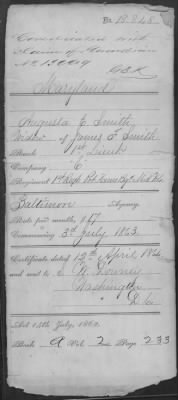 No. 13.848
Consolidated with
Claim of
No.
Maryland
Augusta E. Smith,
Widow of James F. Smith
Rank 1st Lieut
Company "C"
Regiment 1st Regt
Baltimore Agency.
Rate per month, $17
Commencing 3rd July 1863
Certificate dated 12th April 1864
and sent to N. Downey
Washington
D.C.
Act 14th July, 1862.
Book A Vol. 2 Page 233